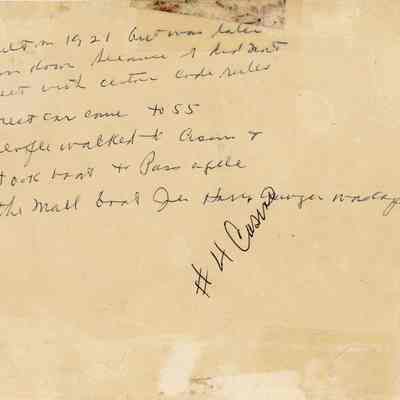 in 1921 but was later
down because it did not
with certain code rules
street car came to 55
People walked to Casino &
took boat to Pass a Grille
the mail boat Joe Harry was cap
# 4 Casino